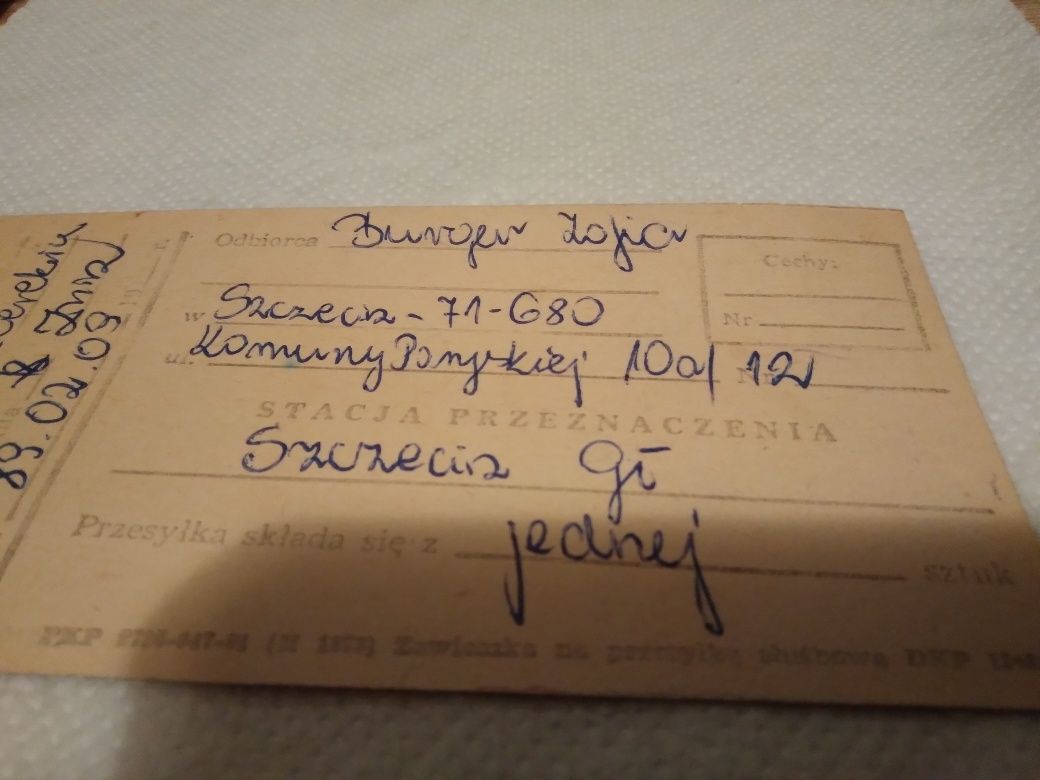 Odbiorca Burger Zofia
w Szczecin - 71-680
ul. Komuny Paryskiej 10a/ Nr 12
Cechy:
Nr
STACJA PRZEZNACZENIA
Szczecin Gł
Przesyłka składa się z jednej sztuk
PKP Zawieszka na przesyłkę służbową DKP
89.02.09